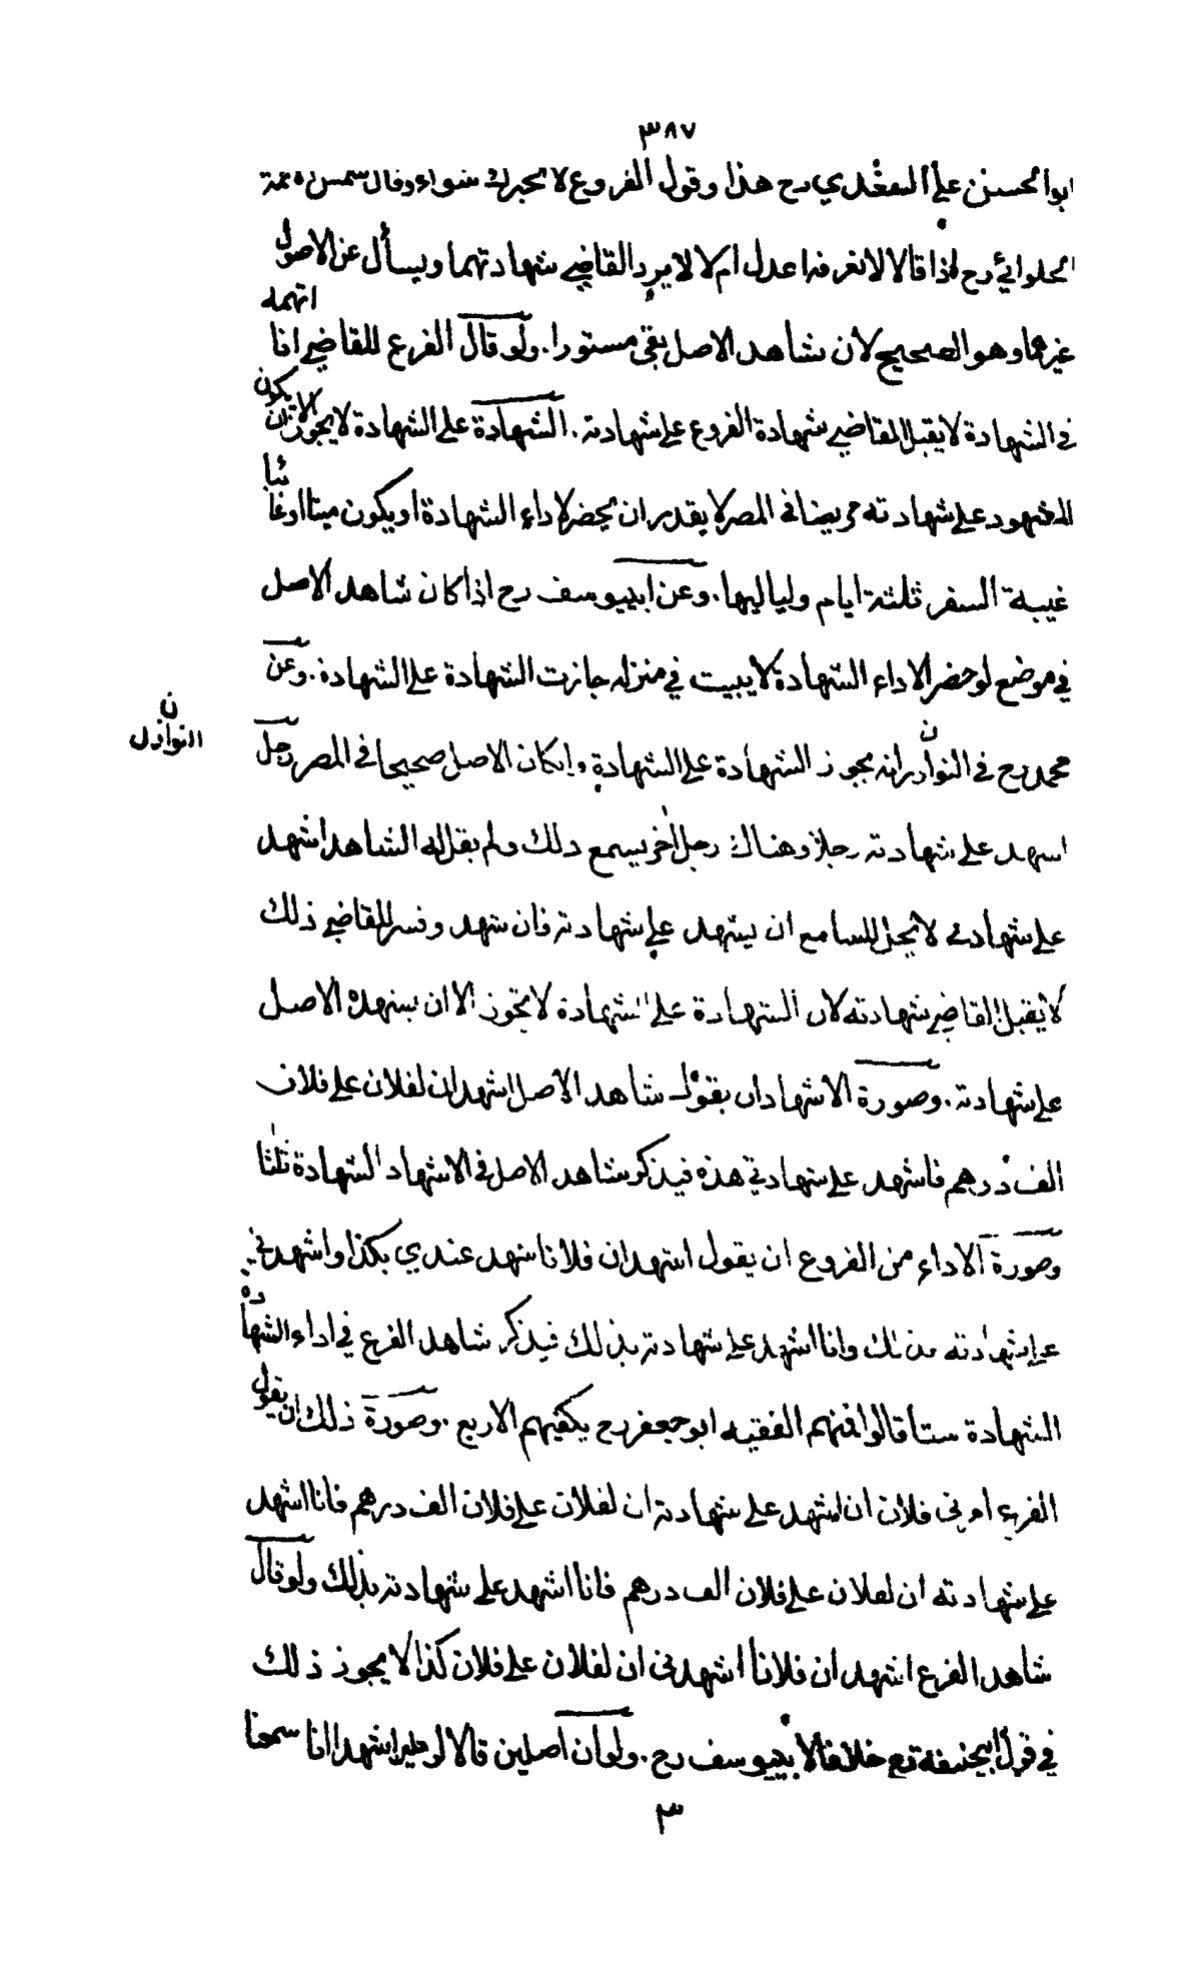 ٣٨٧
ابو الحسن علي السغدي رح هذا وقول الفروع لا نخبرك سواء وقال شمس الائمة
الحلوائي رح اذا قالا لا نعرفه اعدل ام لا لا يرد القاضي شهادتهما ويسأل عن الاصول
غيرهما وهو الصحيح لان شاهد الاصل بقي مستورا. ولو قال الفرع للقاضي انا اتهمه
في الشهادة لا يقبل القاضي شهادة الفروع على شهادته. الشهادة على الشهادة لا يجوز الا ان يكون
المشهود على شهادته مريضا في المصر لا يقدر ان يحضر لاداء الشهادة او يكون ميتا او غائبا
غيبة السفر ثلثة ايام ولياليها. وعن ابييوسف رح اذا كان شاهد الاصل
في موضع لو حضر الاداء الشهادة لا يبيت في منزله جازت الشهادة على الشهادة. وعن
محمد رح في النوادر انه يجوز الشهادة على الشهادة وانكان الاصل صحيحا في المصر رجل
ن
النوازل
اسهد على شهادته رجلا وهناك رجل اخر يسمع ذلك ولم يقل له الشاهد اشهد
على شهادتي لا يحل للسامع ان يشهد على شهادته فان شهد وفسر للقاضي ذلك
لا يقبل القاضي شهادته لان الشهادة على الشهادة لا تجوز الا ان يشهده الاصل
على شهادته. وصورة الاشهاد ان يقول شاهد الاصل اشهد ان لفلان على فلان
الف درهم فاشهد على شهادتي هذه فيذكر شاهد الاصل في الاشهاد الشهادة ثلثا
وصورة الاداء من الفروع ان يقول اشهد ان فلانا شهد عندي بكذا واشهدني
على شهادته من ذلك وانا اشهد على شهادته بذلك فيذكر شاهد الفرع في اداء الشهادة
الشهادة ستا قالوا فمنهم الفقيه ابو جعفر رح يكفيهم الاربع. وصورة ذلك ان يقول
الفرع امرني فلان ان اشهد على شهادته ان لفلان على فلان الف درهم فانا اشهد
على شهادته ان لفلان على فلان الف درهم فانا اشهد على شهادته بذلك ولو قال
شاهد الفرع اشهد ان فلانا اشهدني ان لفلان على فلان كذا لا يجوز ذلك
في قول ابيحنيفة رح خلافا لابييوسف رح. ولو ان اصلين قالا لرجلين اشهدا انا سمعنا
٣